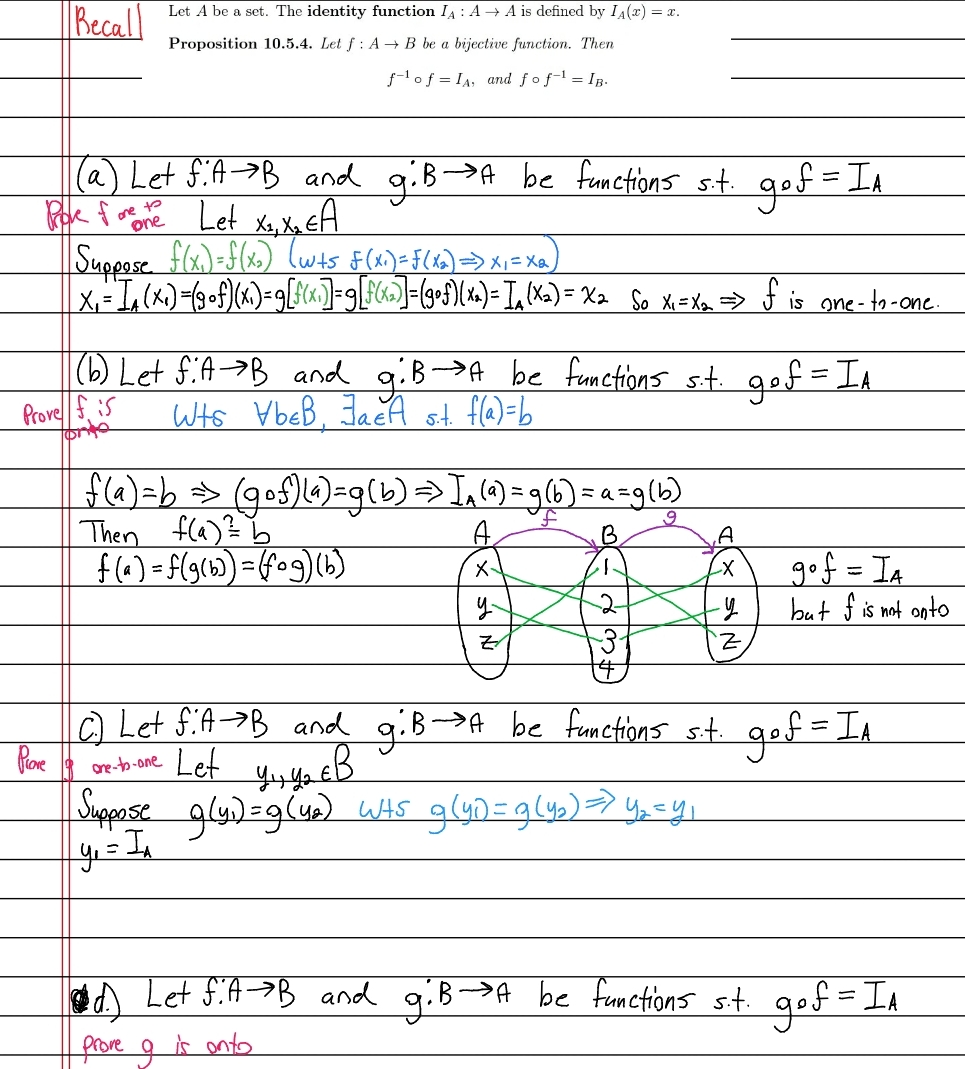 Recall
Let A be a set. The identity function I_A : A → A is defined by I_A(x) = x.
Proposition 10.5.4. Let f : A → B be a bijective function. Then
f⁻¹ ∘ f = I_A, and f ∘ f⁻¹ = I_B.
(a) Let f: A→B and g: B→A be functions s.t. g∘f = I_A
Prove f one to one Let x₁, x₂ ∈ A
Suppose f(x₁)=f(x₂) (wts f(x₁)=f(x₂) ⇒ x₁=x₂)
x₁=I_A(x₁)=(g∘f)(x₁)=g[f(x₁)]=g[f(x₂)]=(g∘f)(x₂)=I_A(x₂)=x₂ So x₁=x₂ ⇒ f is one-to-one.
(b) Let f: A→B and g: B→A be functions s.t. g∘f = I_A
Prove f is onto Wts ∀b∈B, ∃a∈A s.t. f(a)=b
f(a)=b ⇒ (g∘f)(a)=g(b) ⇒ I_A(a)=g(b)=a=g(b)
Then f(a)≟b
f(a)=f(g(b))=(f∘g)(b)
f g
A B A
x 1 x
y 2 y
z 3 z
4
g∘f = I_A
but f is not onto
c.) Let f: A→B and g: B→A be functions s.t. g∘f = I_A
Prove g one-to-one Let y₁, y₂ ∈ B
Suppose g(y₁)=g(y₂) Wts g(y₁)=g(y₂) ⇒ y₂=y₁
y₁ = I_A
d.) Let f: A→B and g: B→A be functions s.t. g∘f = I_A
prove g is onto